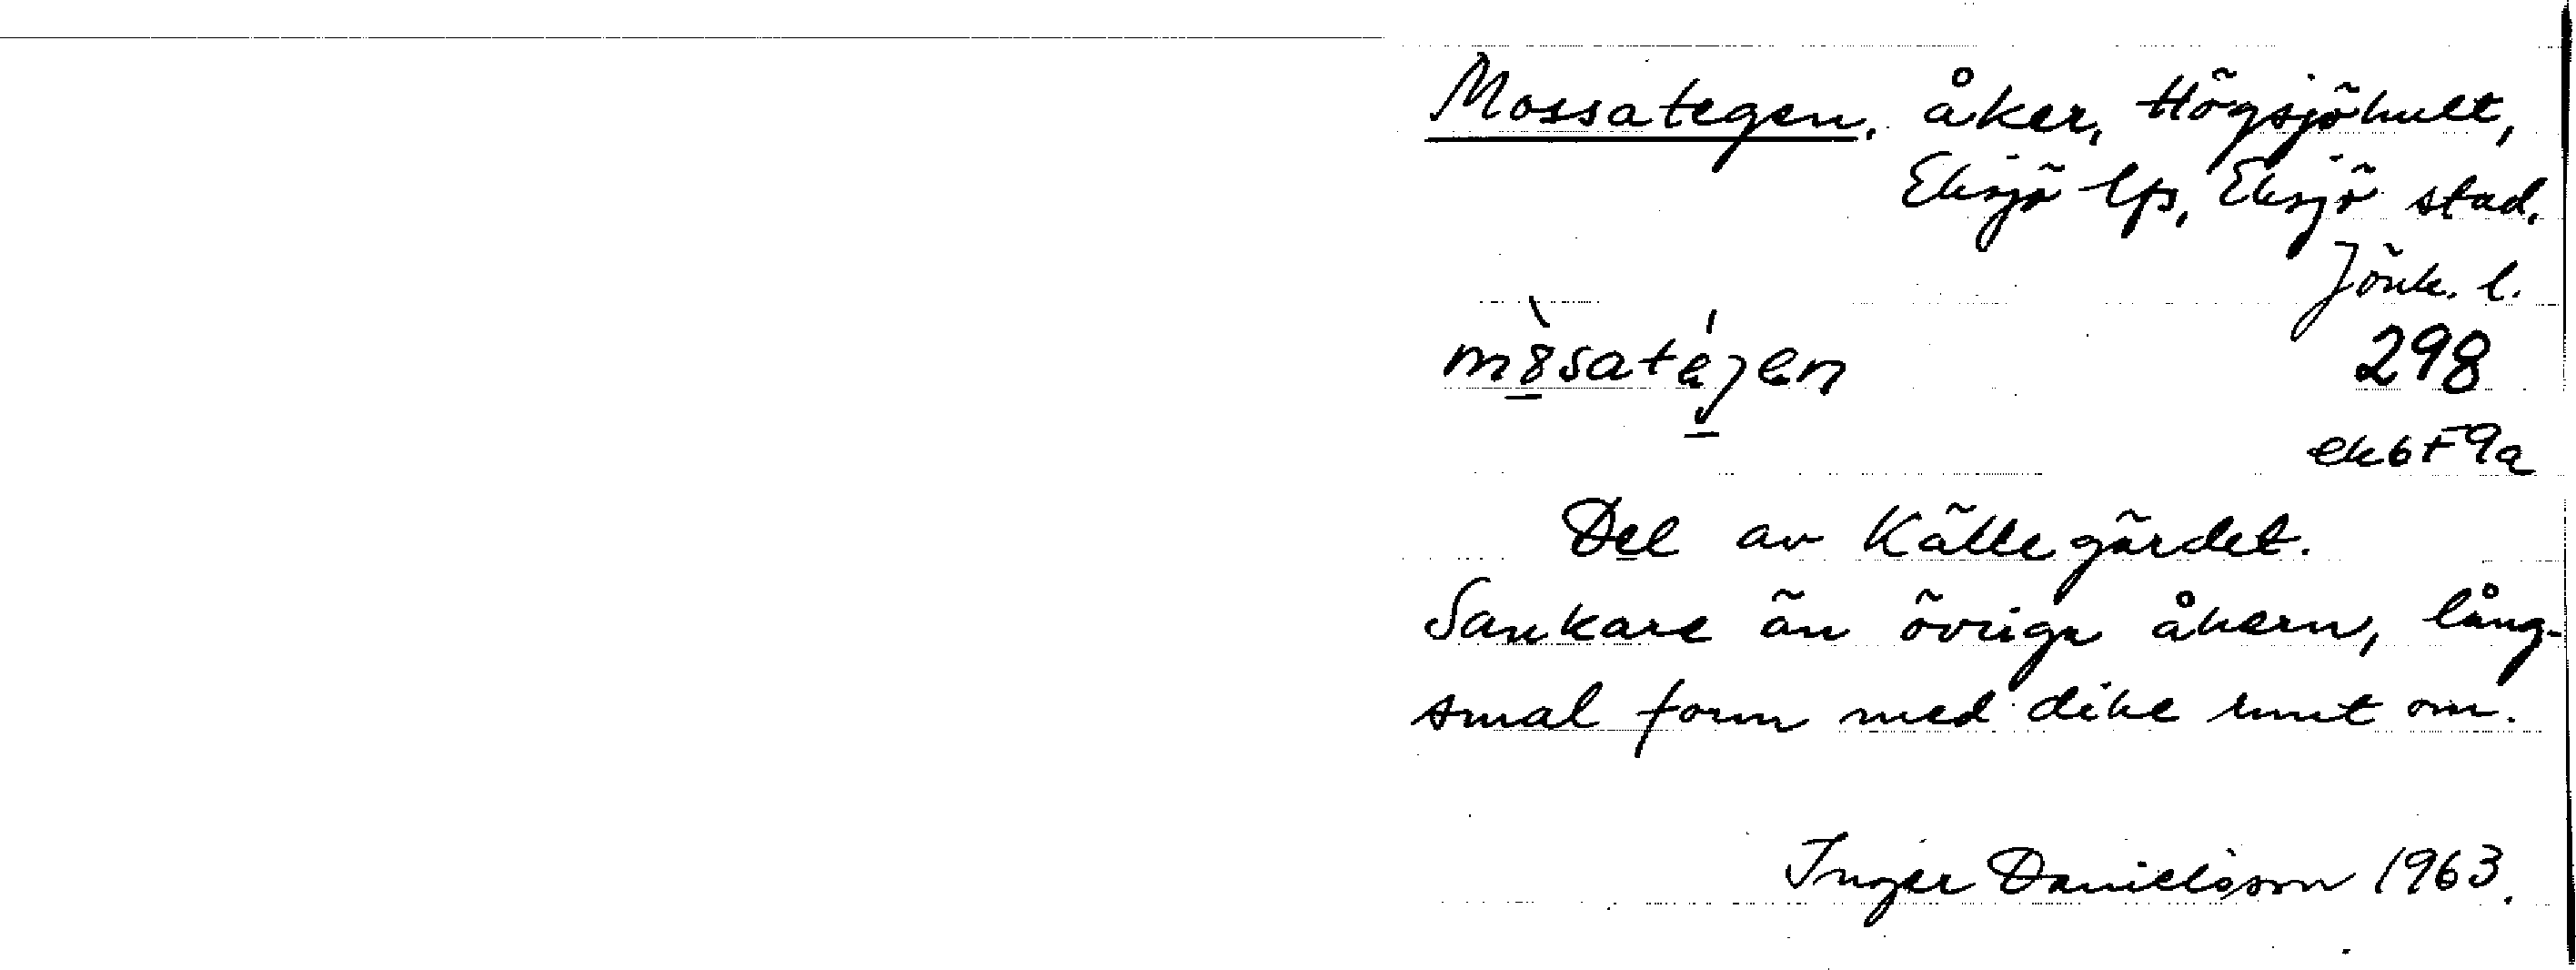 Mossategen, åker, Högsjöhult,
Eksjö lfs, Eksjö stad.
Jönk. l.
298
ek6F9a
Del av Källegärdet.
Sankare än övriga åkern, lång-
smal form med dike runt om.
Inger Danielsson 1963.